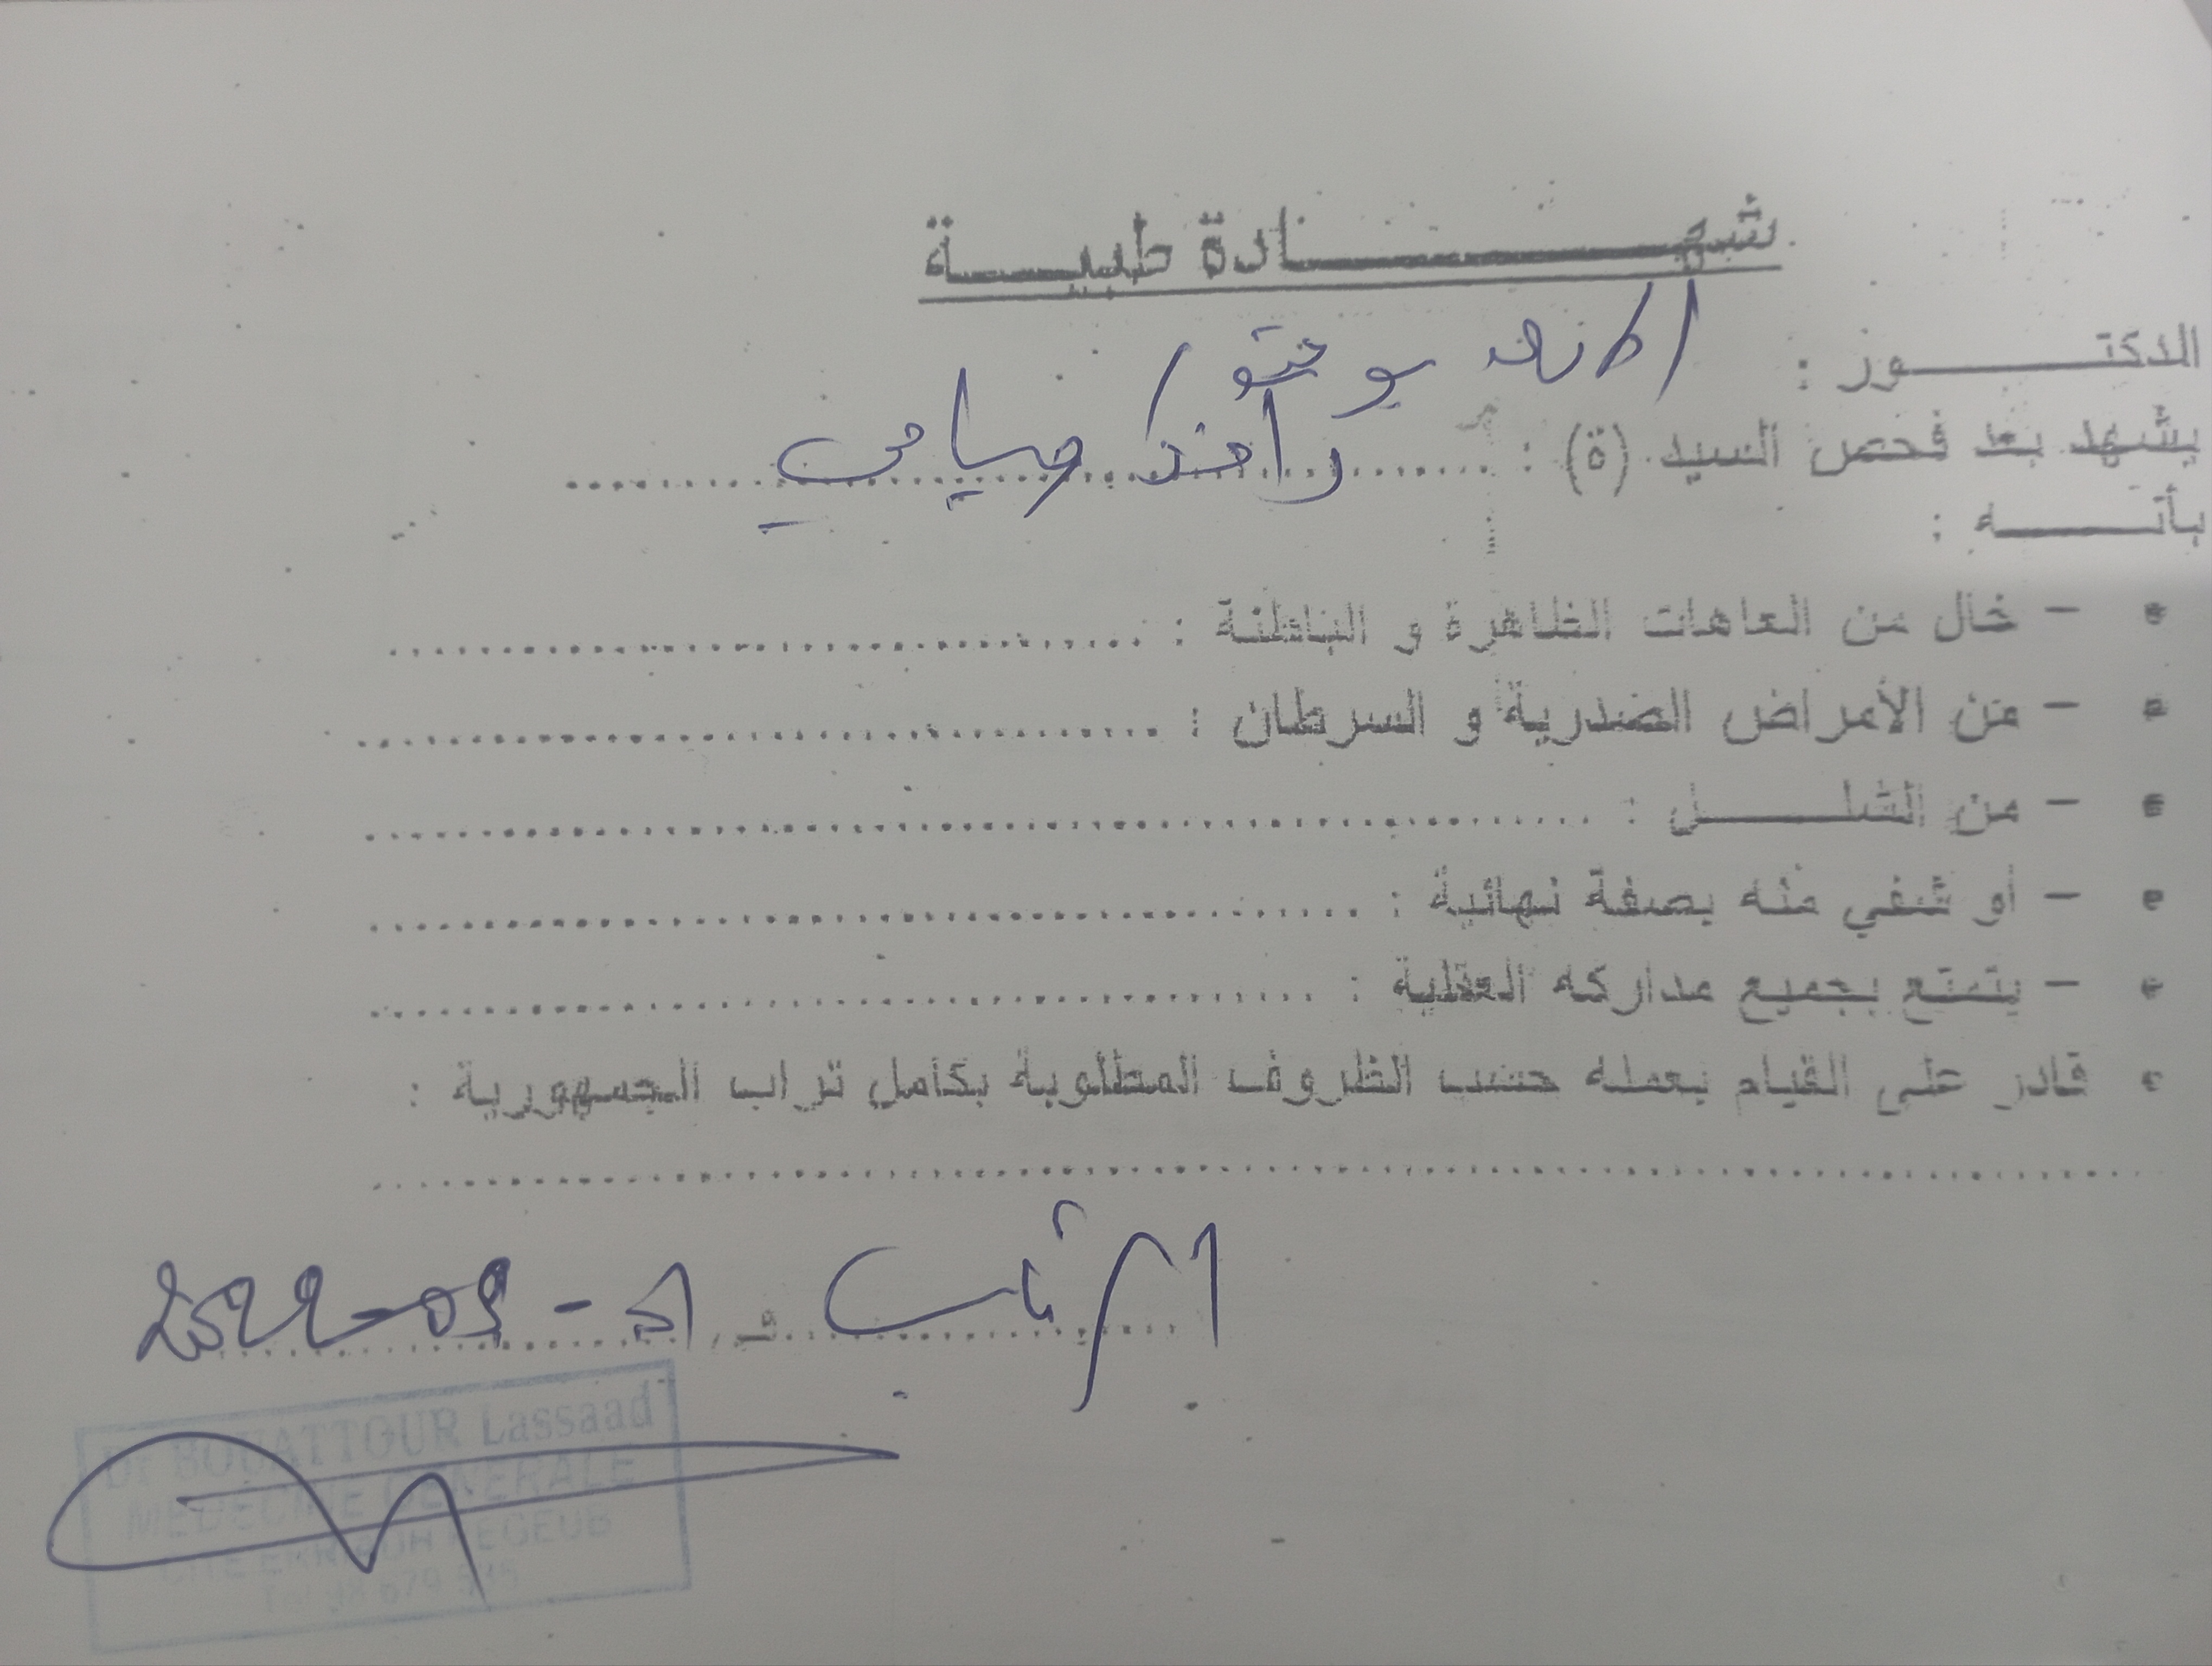 شهـــــــــادة طبيـــــة
الدكتـــــــور :
يشهد بعد فحص السيد (ة) : ........................
بأنـــــــه :
• – خال من العاهات الظاهرة و الباطنة : ........................
• – من الأمراض الصدرية و السرطان : ........................
• – من الشلـــــــل : ........................
• – أو شفي منه بصفة نهائية : ........................
• – يتمتع بجميع مداركه العقلية : ........................
• قادر على القيام بعمله حسب الظروف المطلوبة بكامل تراب الجمهورية :
........................
الرقاب في
Dr BOUATTOUR Lassaad
MEDECINE GENERALE
REGEUB